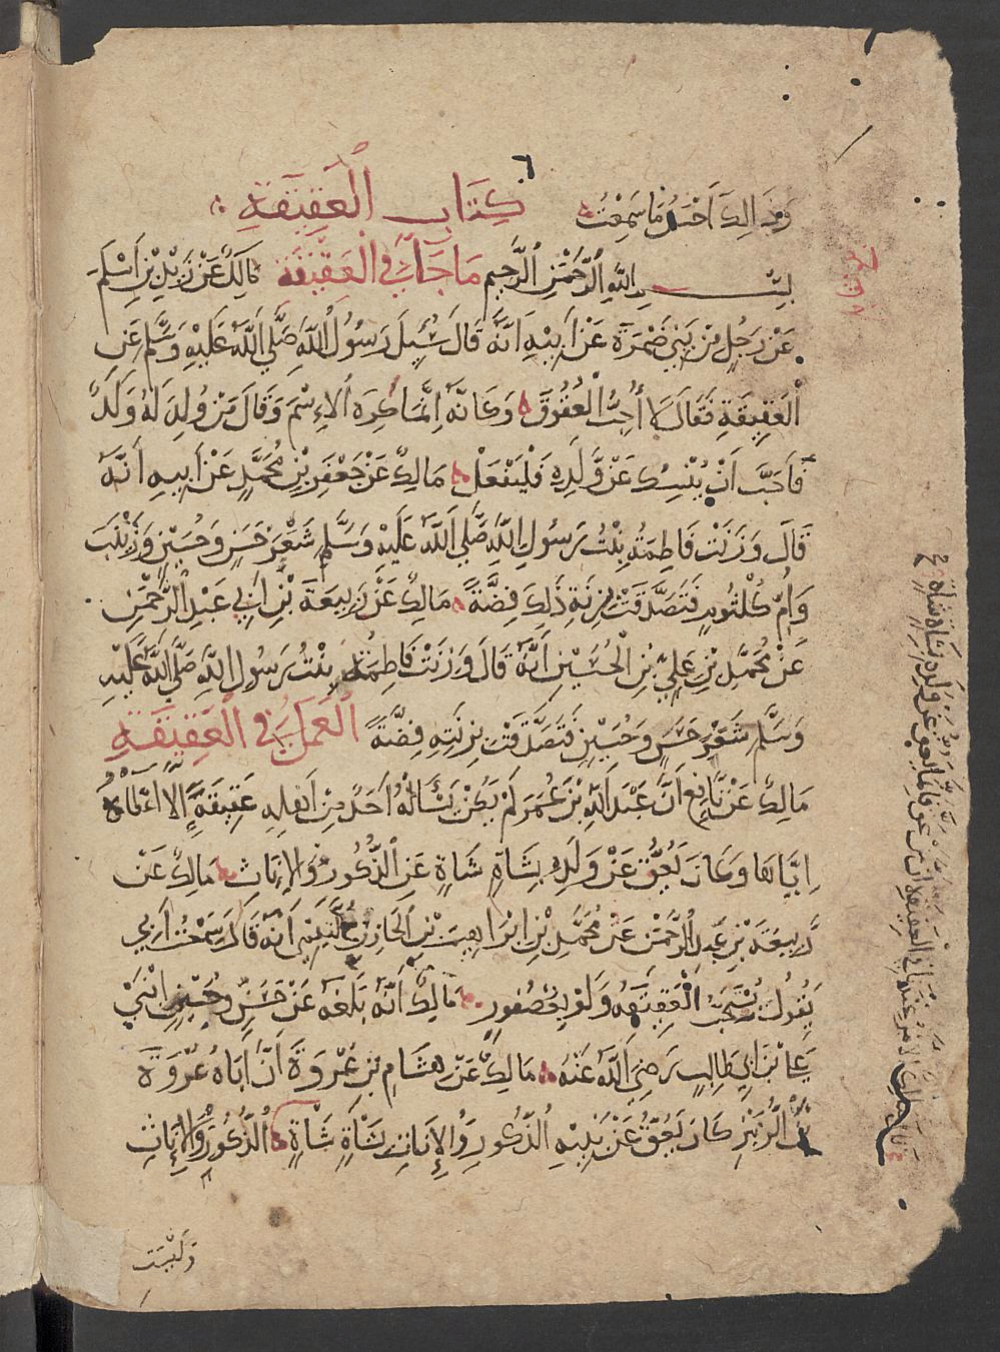 وذلك أحب ما سمعت كتاب العقيقة
بسم الله الرحمن الرحيم ما جاء في العقيقة مالك عن زيد بن أسلم
عن رجل من بني ضمرة عن أبيه أنه قال سئل رسول الله صلى الله عليه وسلم عن
العقيقة فقال لا أحب العقوق وكأنه إنما كره الاسم وقال من ولد له ولد
فأحب أن ينسك عن ولده فليفعل مالك عن جعفر بن محمد عن أبيه أنه
قال وزنت فاطمة بنت رسول الله صلى الله عليه وسلم شعر حسن وحسين وزينب
وأم كلثوم فتصدقت بزنة ذلك فضة مالك عن ربيعة بن أبي عبد الرحمن
عن محمد بن علي بن الحسين أنه قال وزنت فاطمة بنت رسول الله صلى الله عليه
وسلم شعر حسن وحسين فتصدقت بزنته فضة العمل في العقيقة
مالك عن نافع أن عبد الله بن عمر لم يكن يسأله أحد من أهله عقيقة إلا أعطاه
إياها وكان يعق عن ولده بشاة شاة عن الذكور والإناث مالك عن
ربيعة بن عبد الرحمن عن محمد بن إبراهيم بن الحارث التيمي أنه قال سمعت أبي
يقول تستحب العقيقة ولو بعصفور مالك أنه بلغه عن حسن وحسين ابني
علي بن أبي طالب رضي الله عنه مالك عن هشام بن عروة أن أباه عروة
بن الزبير كان يعق عن بنيه الذكور والإناث بشاة شاة الذكور والإناث
وليست